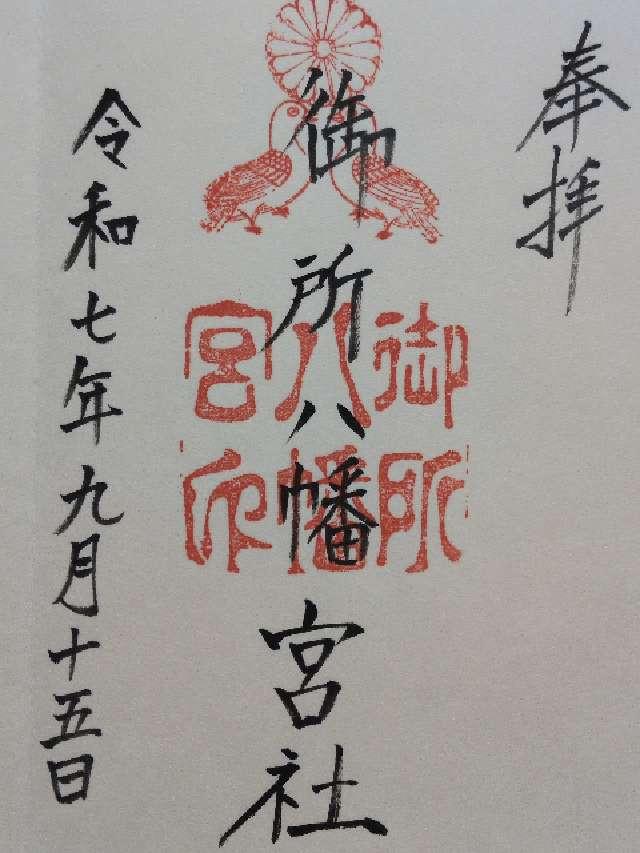 奉拝
御所八幡宮社
御所
八幡
宮印
令和七年九月十五日